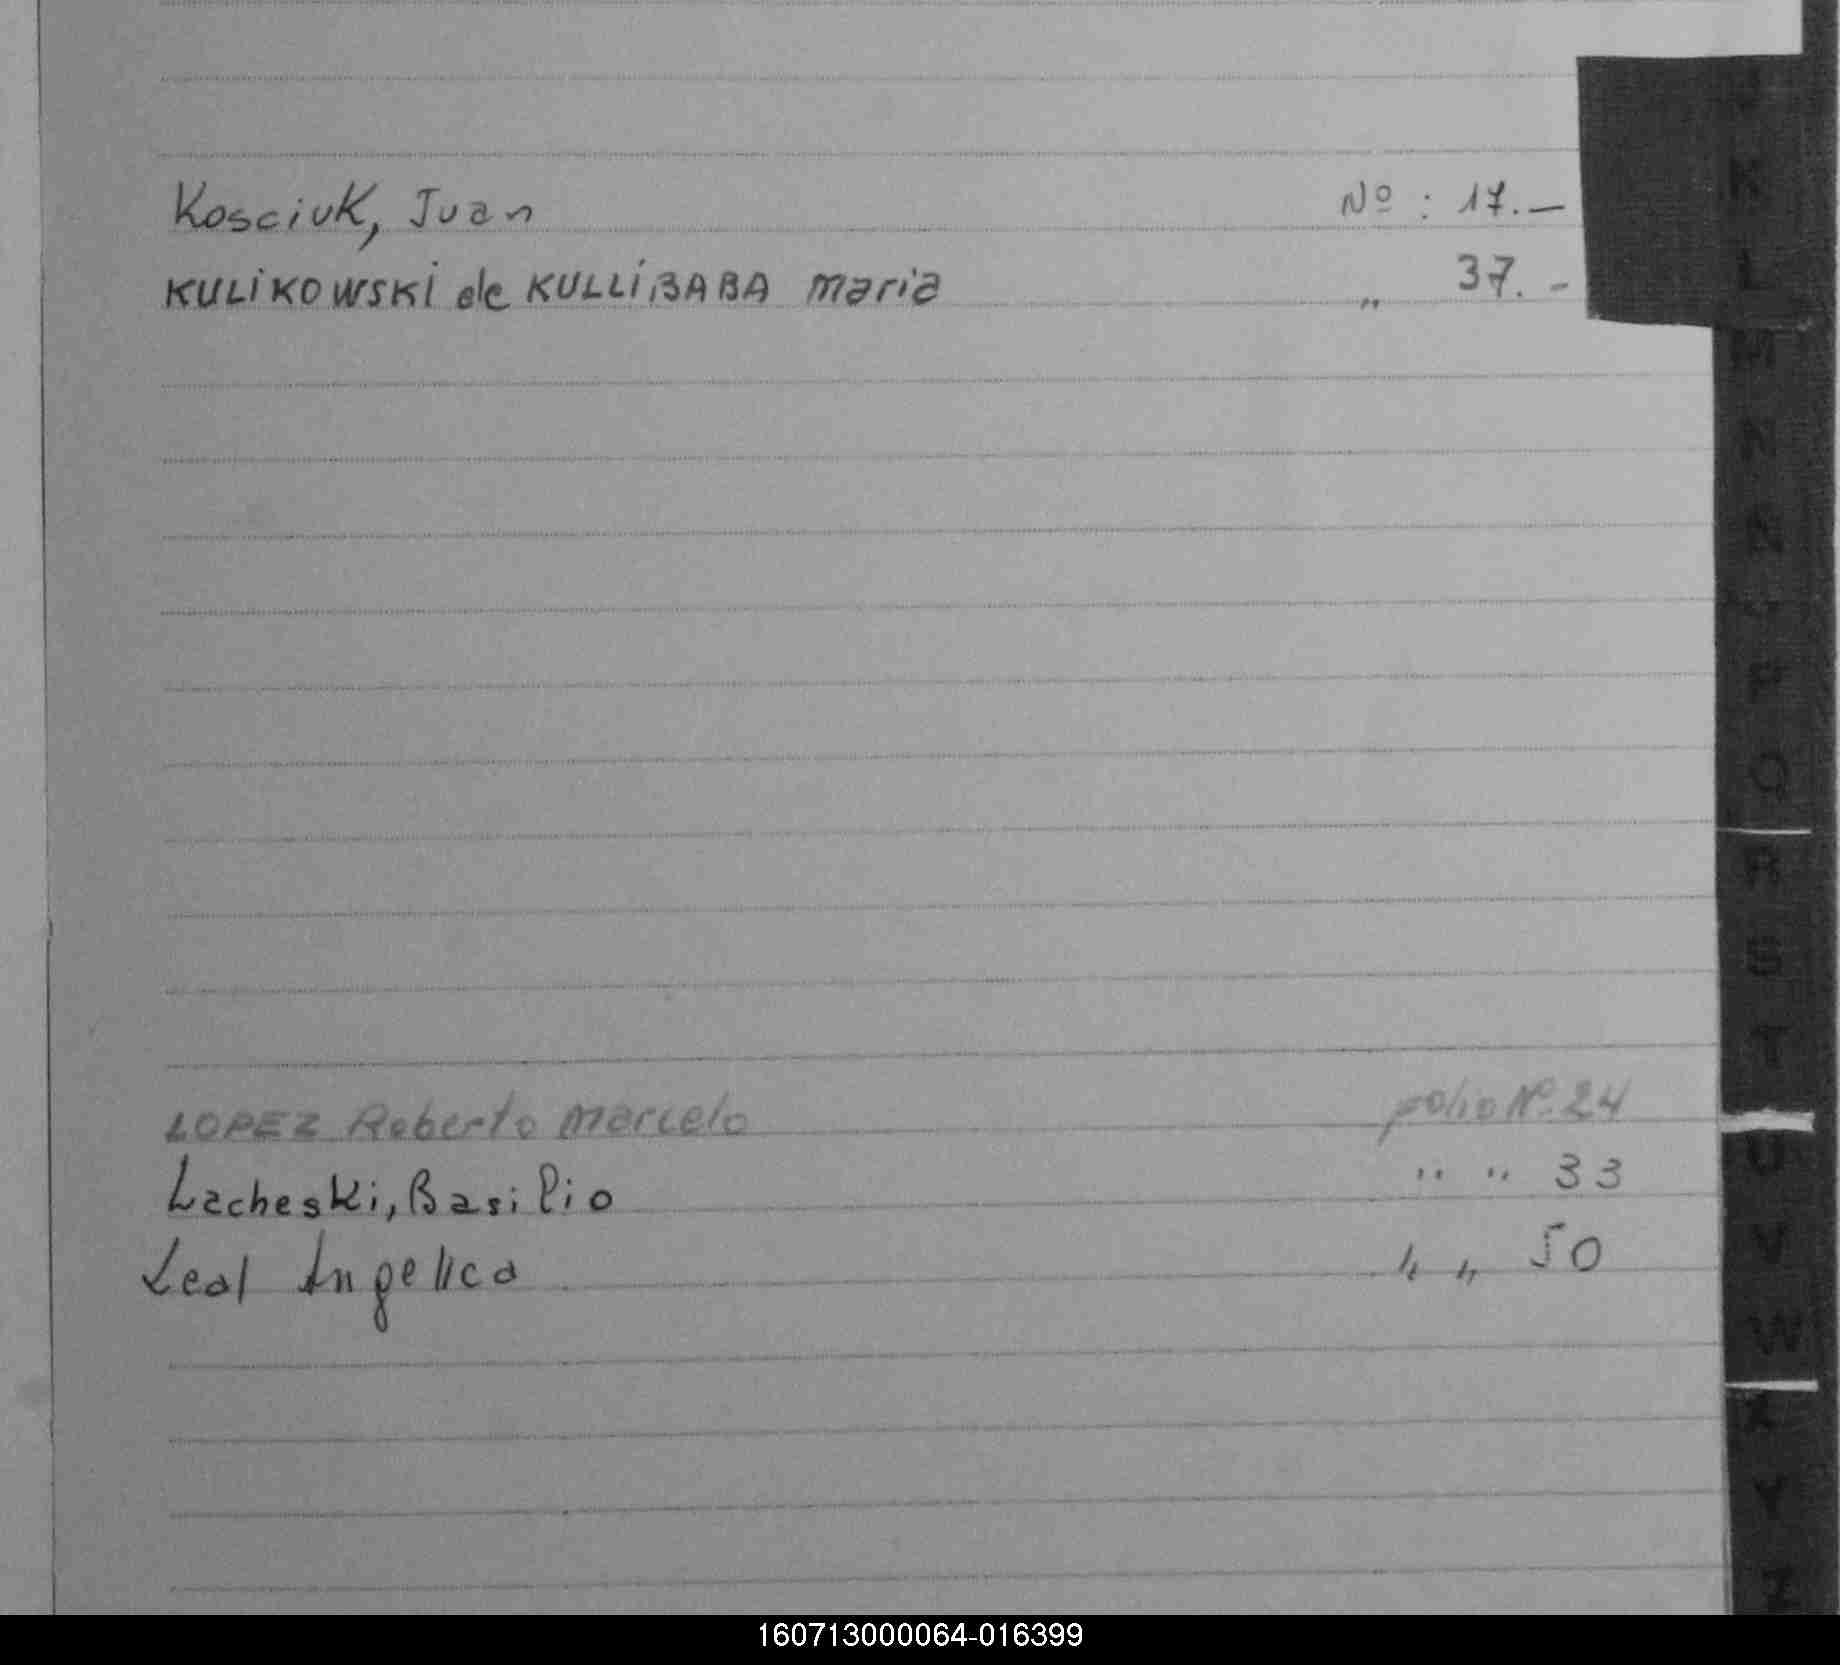 Kosciuk, Juan Nº : 17.—
KULIKOWSKI de KULLIBABA Maria " 37.-
LOPEZ Roberto Marcelo folio Nº 24
Lacheski, Basilio " " 33
Leal Angelica " " 50
K
L
M
N
Ñ
P
Q
R
S
T
U
V
W
X
Y
Z
160713000064-016399